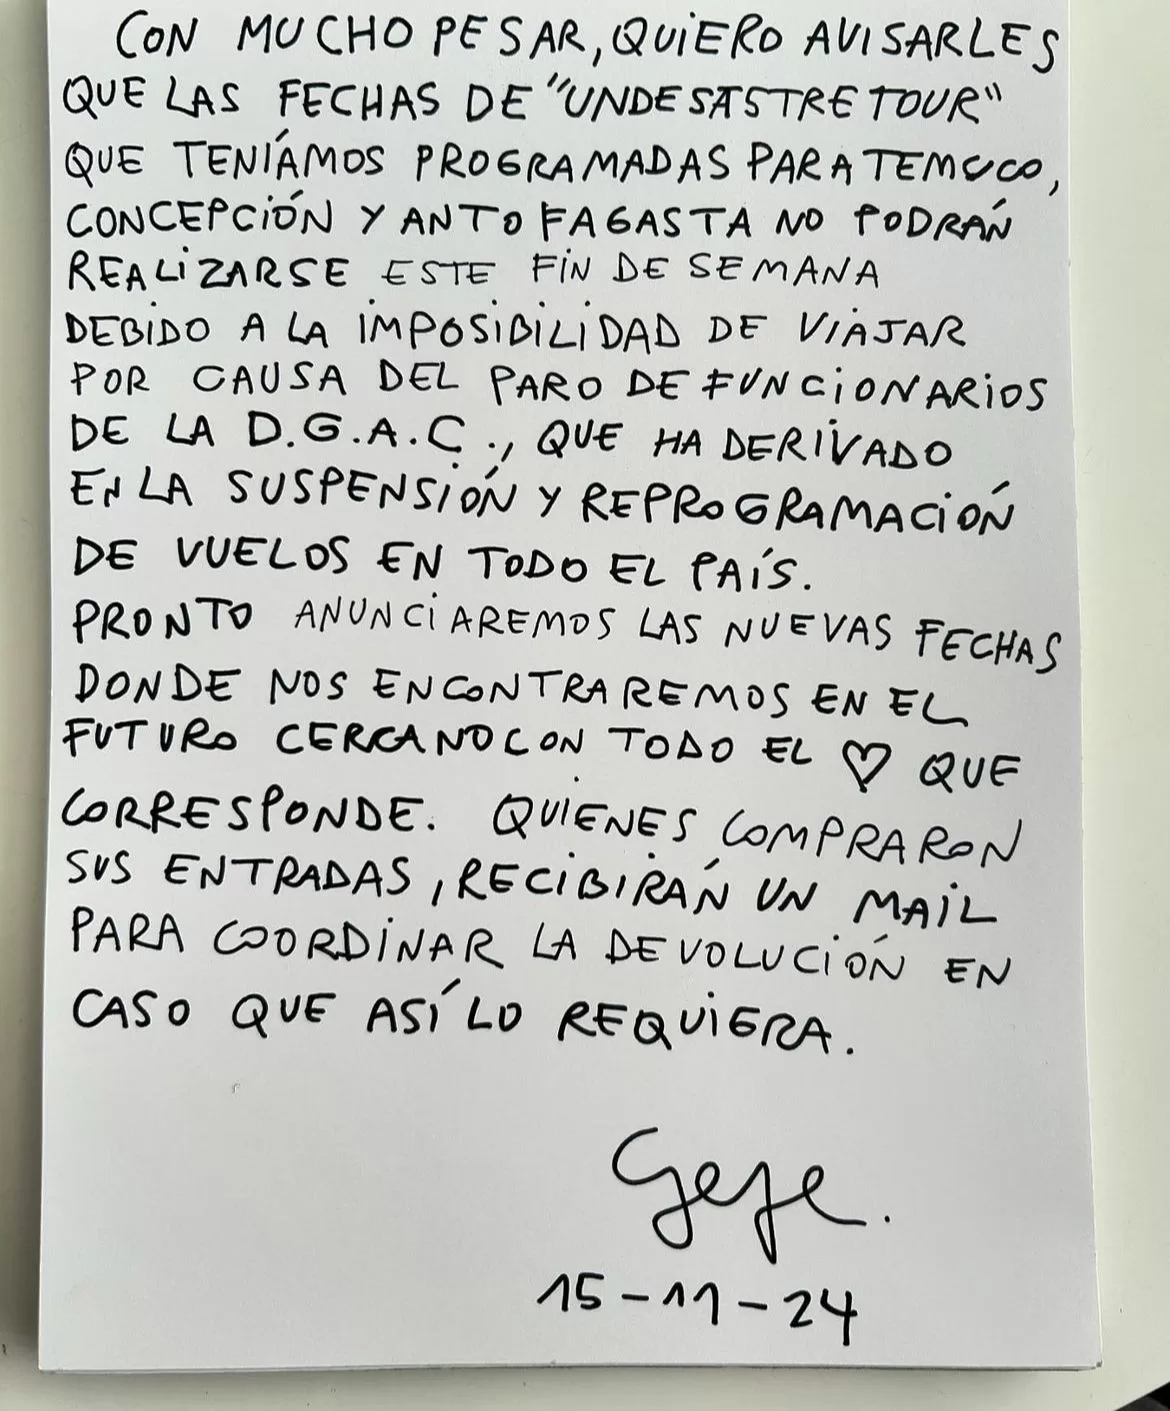 CON MUCHO PESAR, QUIERO AVISARLES
QUE LAS FECHAS DE "UN DESASTRE TOUR"
QUE TENÍAMOS PROGRAMADAS PARA TEMUCO,
CONCEPCIÓN Y ANTOFAGASTA NO PODRÁN
REALIZARSE ESTE FIN DE SEMANA
DEBIDO A LA IMPOSIBILIDAD DE VIAJAR
POR CAUSA DEL PARO DE FUNCIONARIOS
DE LA D.G.A.C., QUE HA DERIVADO
EN LA SUSPENSIÓN Y REPROGRAMACIÓN
DE VUELOS EN TODO EL PAÍS.
PRONTO ANUNCIAREMOS LAS NUEVAS FECHAS
DONDE NOS ENCONTRAREMOS EN EL
FUTURO CERCANO CON TODO EL ♡ QUE
CORRESPONDE. QUIENES COMPRARON
SUS ENTRADAS, RECIBIRÁN UN MAIL
PARA COORDINAR LA DEVOLUCIÓN EN
CASO QUE ASÍ LO REQUIERA.
Gepe.
15-11-24